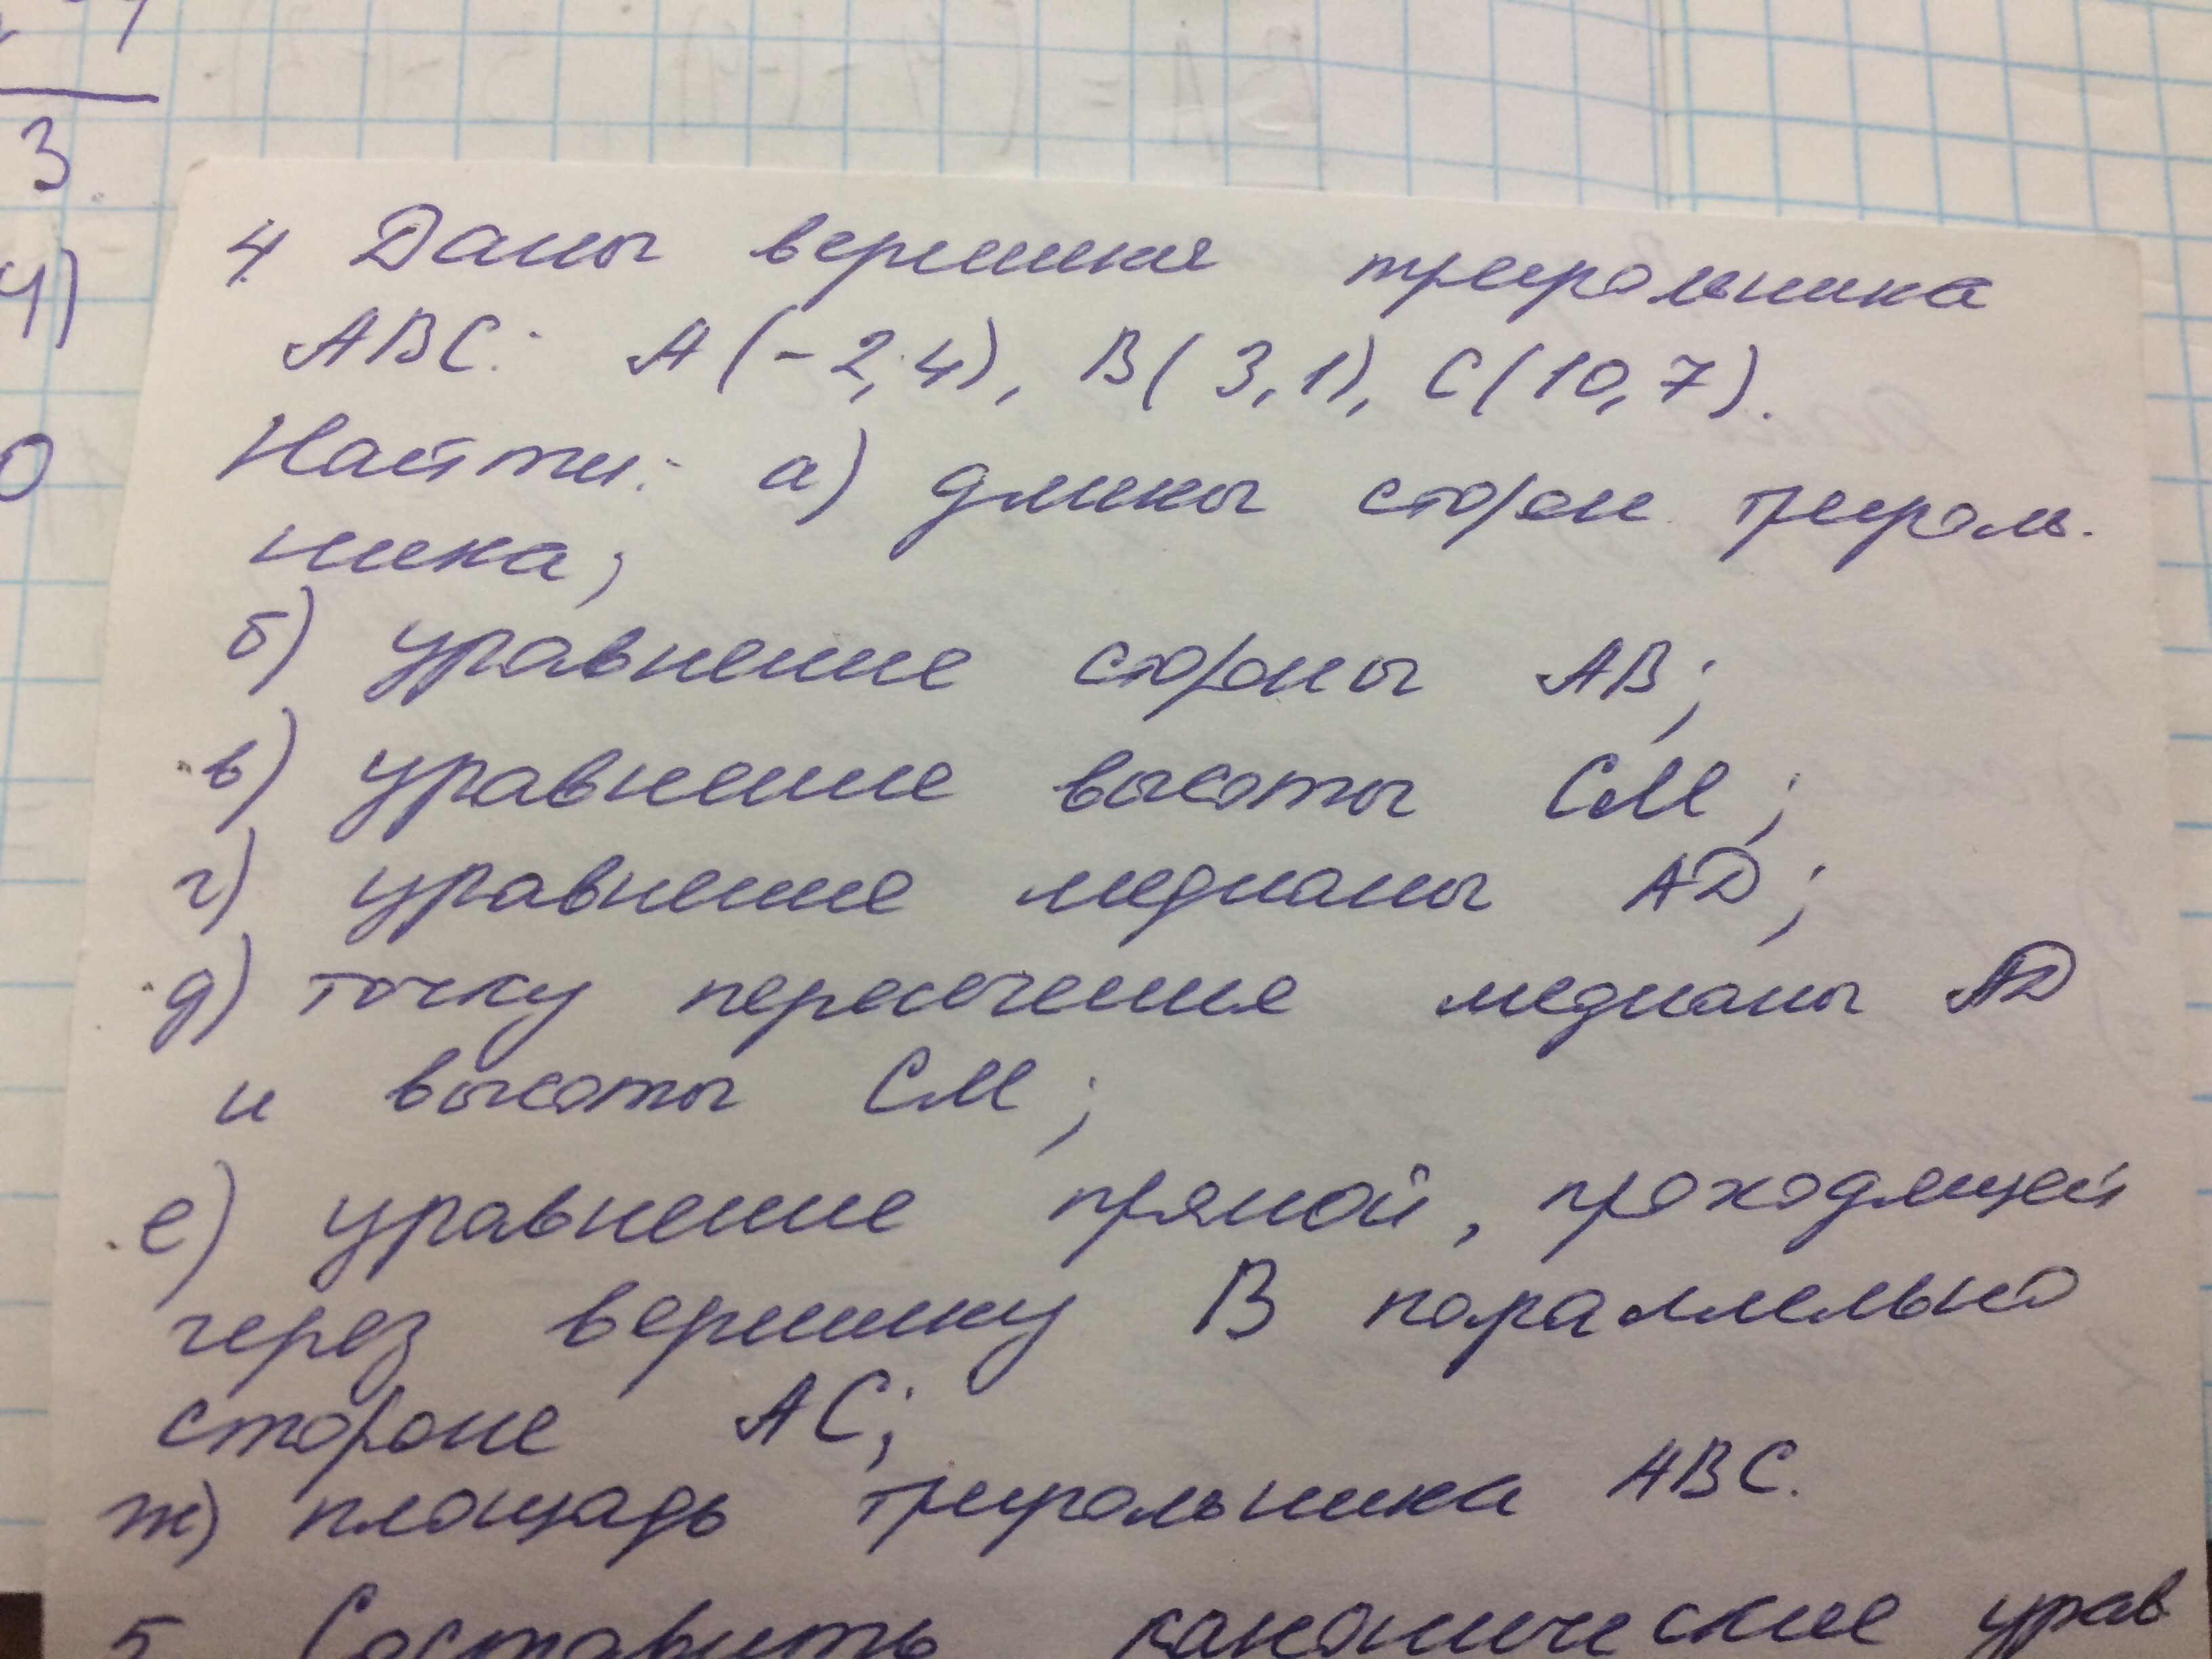 3
4)
0
4. Даны вершины треугольника
ABC: A(-2,4), B(3,1), C(10,7).
Найти: а) длины сторон треуголь-
ника;
б) уравнение стороны AB;
в) уравнение высоты CM;
г) уравнение медианы AD;
д) точку пересечения медианы AD
и высоты CM;
е) уравнение прямой, проходящей
через вершину B параллельно
стороне AC;
ж) площадь треугольника ABC.
5. Составить канонические урав